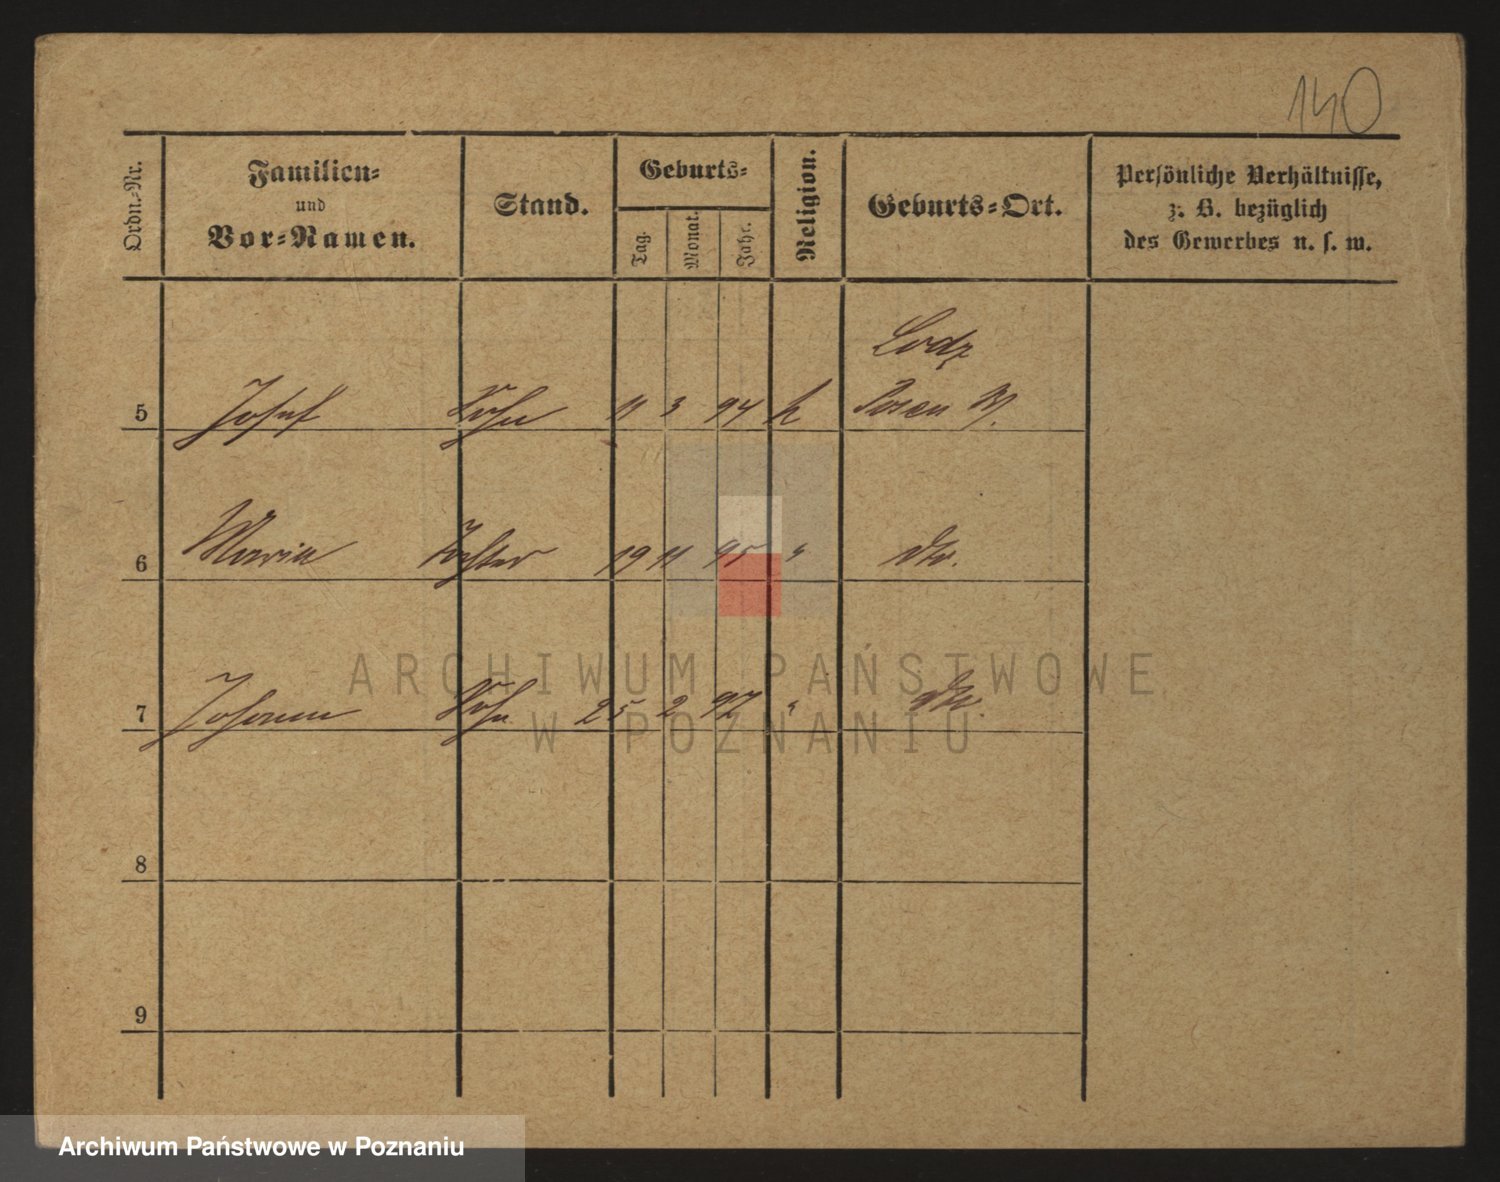 140
Ordn.-Nr.
Familien-
und
Vor-Namen.
Stand.
Geburts-
Tag.
Monat.
Jahr.
Religion.
Geburts-Ort.
Persönliche Verhältnisse,
z. B. bezüglich
des Gewerbes u. s. w.
Lodz
5 Josef Sohn 11 3 94 k Posen W.
6 Maria Tochter 19 11 95 " dto.
7 Johann Sohn 25 2 97 " dto.
8
9
ARCHIWUM PAŃSTWOWE
W POZNANIU
Archiwum Państwowe w Poznaniu